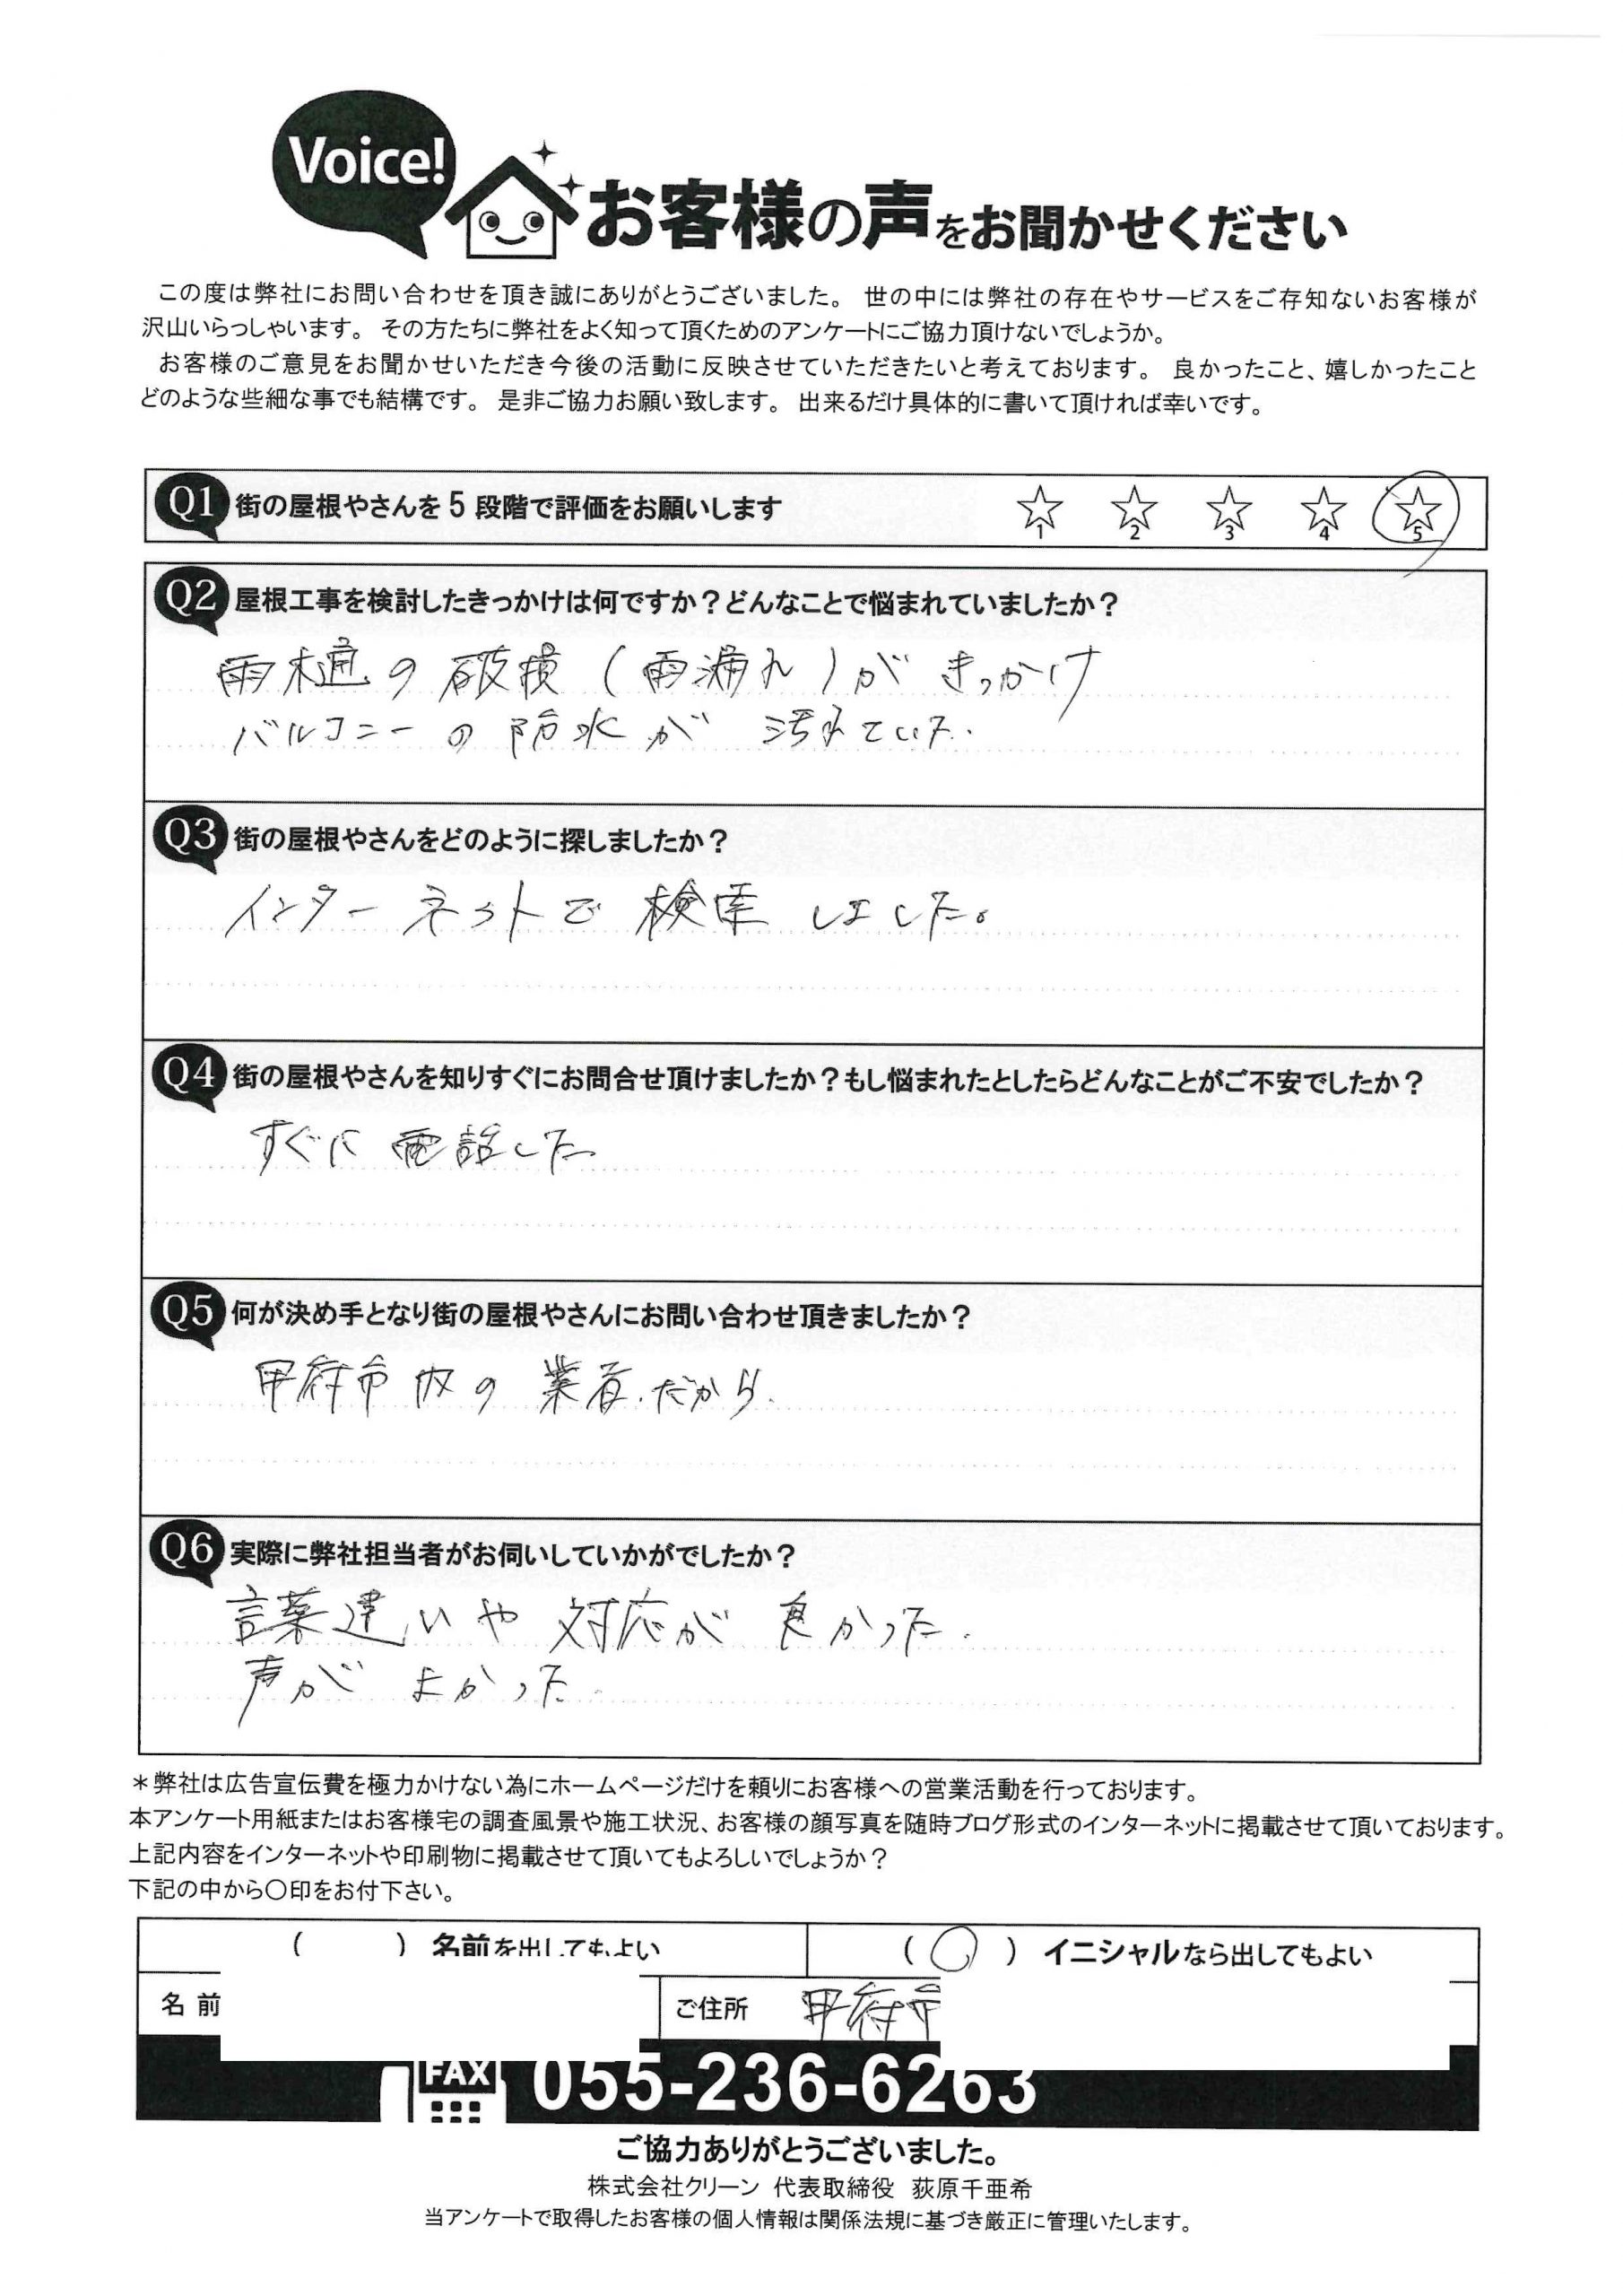 Voice!
お客様の声をお聞かせください
この度は弊社にお問い合わせを頂き誠にありがとうございました。 世の中には弊社の存在やサービスをご存知ないお客様が
沢山いらっしゃいます。 その方たちに弊社をよく知って頂くためのアンケートにご協力頂けないでしょうか。
お客様のご意見をお聞かせいただき今後の活動に反映させていただきたいと考えております。 良かったこと、嬉しかったこと
どのような些細な事でも結構です。 是非ご協力お願い致します。 出来るだけ具体的に書いて頂ければ幸いです。
Q1 街の屋根やさんを 5 段階で評価をお願いします ☆1 ☆2 ☆3 ☆4 ☆5
Q2 屋根工事を検討したきっかけは何ですか？どんなことで悩まれていましたか？
雨樋の破損（雨漏れ）がきっかけ
バルコニーの防水が 汚れていた.
Q3 街の屋根やさんをどのように探しましたか？
インターネットで検索しました。
Q4 街の屋根やさんを知りすぐにお問合せ頂けましたか？もし悩まれたとしたらどんなことがご不安でしたか？
すぐに電話した
Q5 何が決め手となり街の屋根やさんにお問い合わせ頂きましたか？
甲府市内の業者だから.
Q6 実際に弊社担当者がお伺いしていかがでしたか？
言葉遣いや対応が良かった.
声がよかった
＊弊社は広告宣伝費を極力かけない為にホームページだけを頼りにお客様への営業活動を行っております。
本アンケート用紙またはお客様宅の調査風景や施工状況、お客様の顔写真を随時ブログ形式のインターネットに掲載させて頂いております。
上記内容をインターネットや印刷物に掲載させて頂いてもよろしいでしょうか？
下記の中から〇印をお付下さい。
（　　） 名前を出してもよい （ ○ ） イニシャルなら出してもよい
名 前 ご住所 甲府市
FAX 055-236-6263
ご協力ありがとうございました。
株式会社クリーン 代表取締役 荻原千亜希
当アンケートで取得したお客様の個人情報は関係法規に基づき厳正に管理いたします。